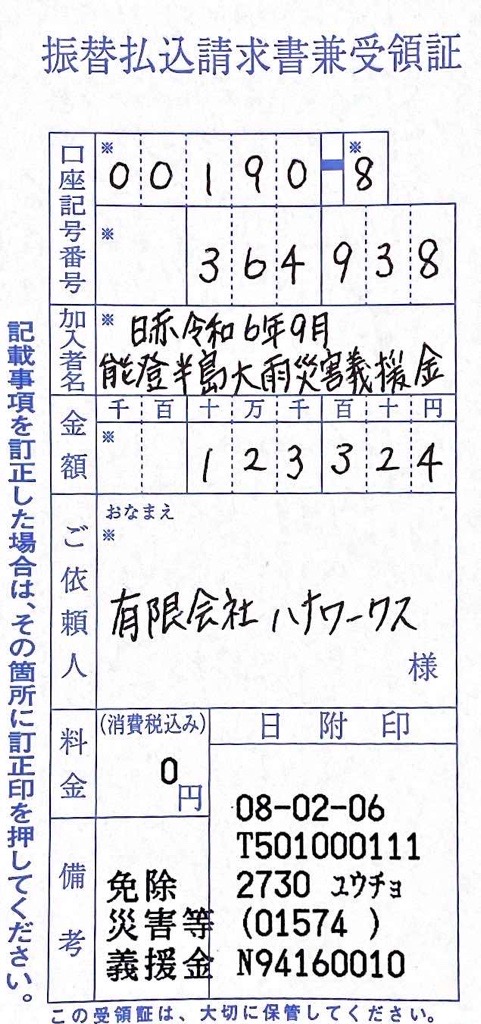 振替払込請求書兼受領証
口座記号番号
※ 00190-※8
※ 364938
加入者名
※ 日赤令和6年9月
能登半島大雨災害義援金
金額
千百十万千百十円
※ 123324
ご依頼人
おなまえ
※
有限会社ハナワークス
様
料金
(消費税込み)
0
円
日附印
08-02-06
T501000111
2730 ユウチョ
(01574 )
N94160010
備考
免除
災害等
義援金
記載事項を訂正した場合は、その箇所に訂正印を押してください。
この受領証は、大切に保管してください。